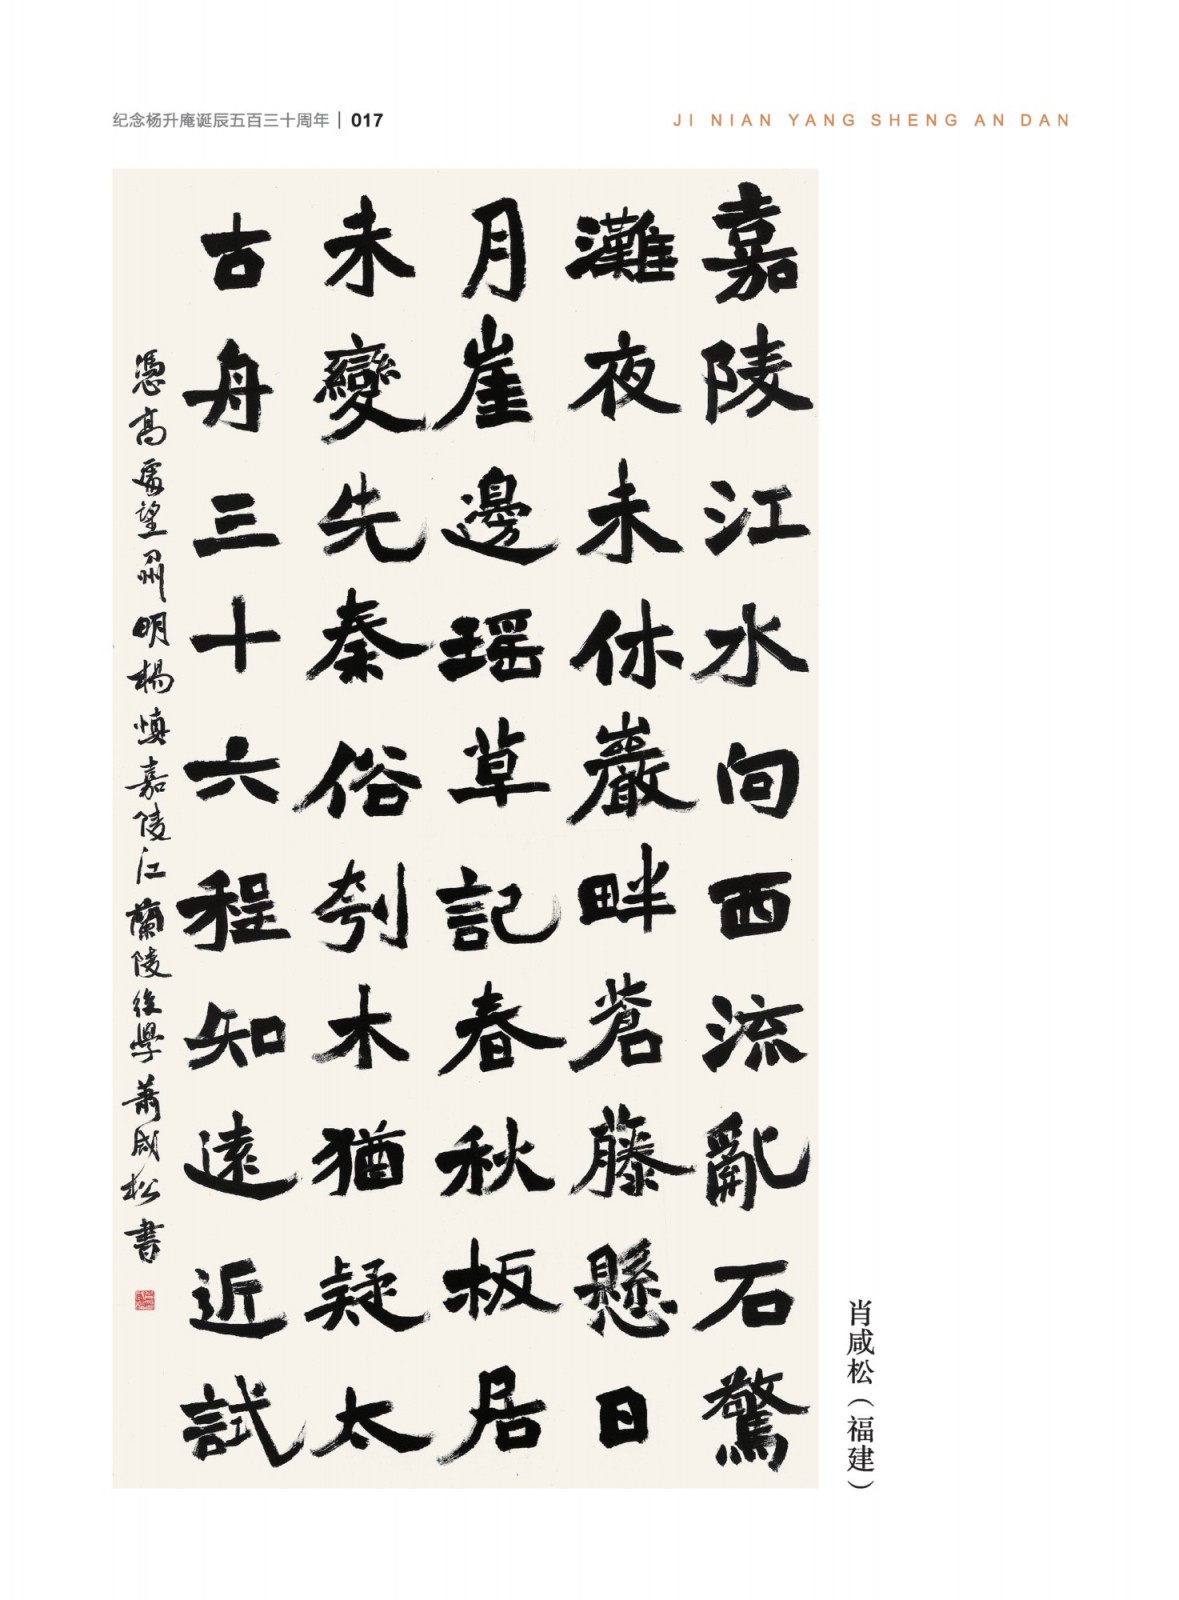 纪念杨升庵诞辰五百三十周年 | 017
JI NIAN YANG SHENG AN DAN
嘉陵江水向西流亂石驚
灘夜未休巖畔蒼藤懸日
月崖邊瑶草記春秋板居
未變先秦俗刳木猶疑太
古舟三十六程知遠近試
憑高處望州明楊慎嘉陵江蘭陵後學蕭咸松書
肖咸松（福建）